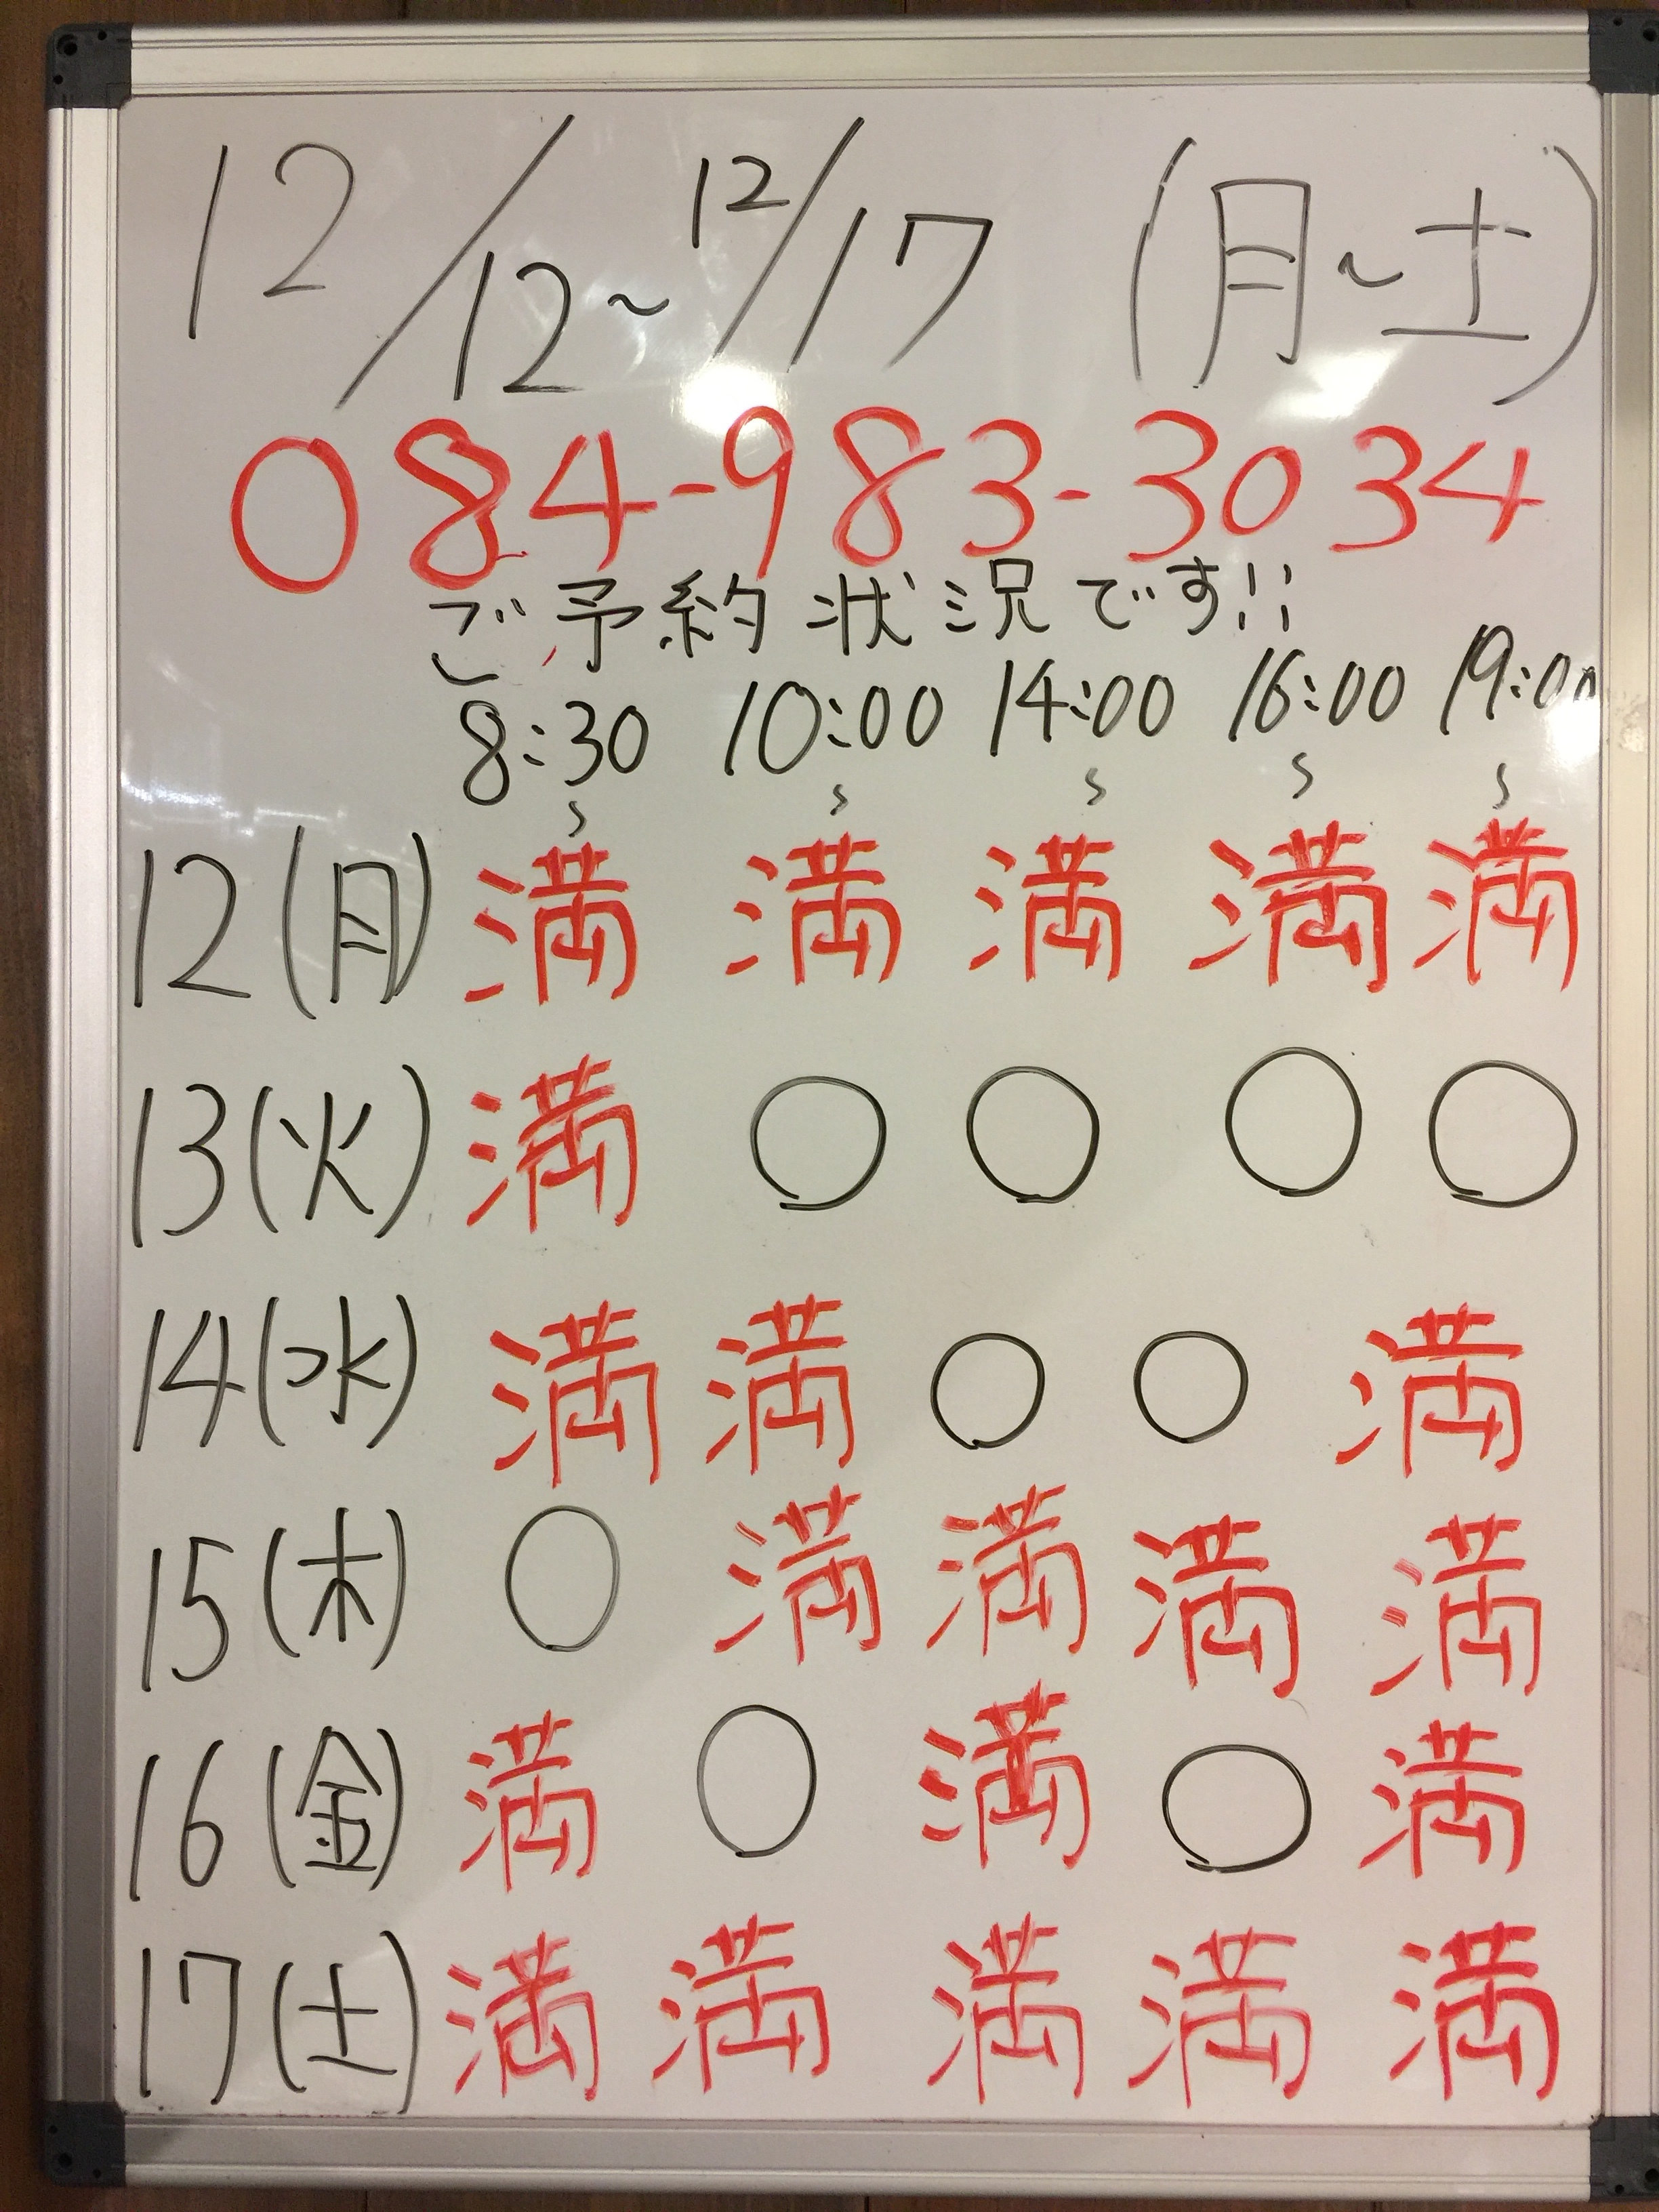 12/12~12/17 (月~土)
084-983-3034
ご予約状況です!!
8:30~ 10:00~ 14:00~ 16:00~ 19:00~
12(月) 満 満 満 満 満
13(火) 満 ○ ○ ○ ○
14(水) 満 満 ○ ○ 満
15(木) ○ 満 満 満 満
16(金) 満 ○ 満 ○ 満
17(土) 満 満 満 満 満